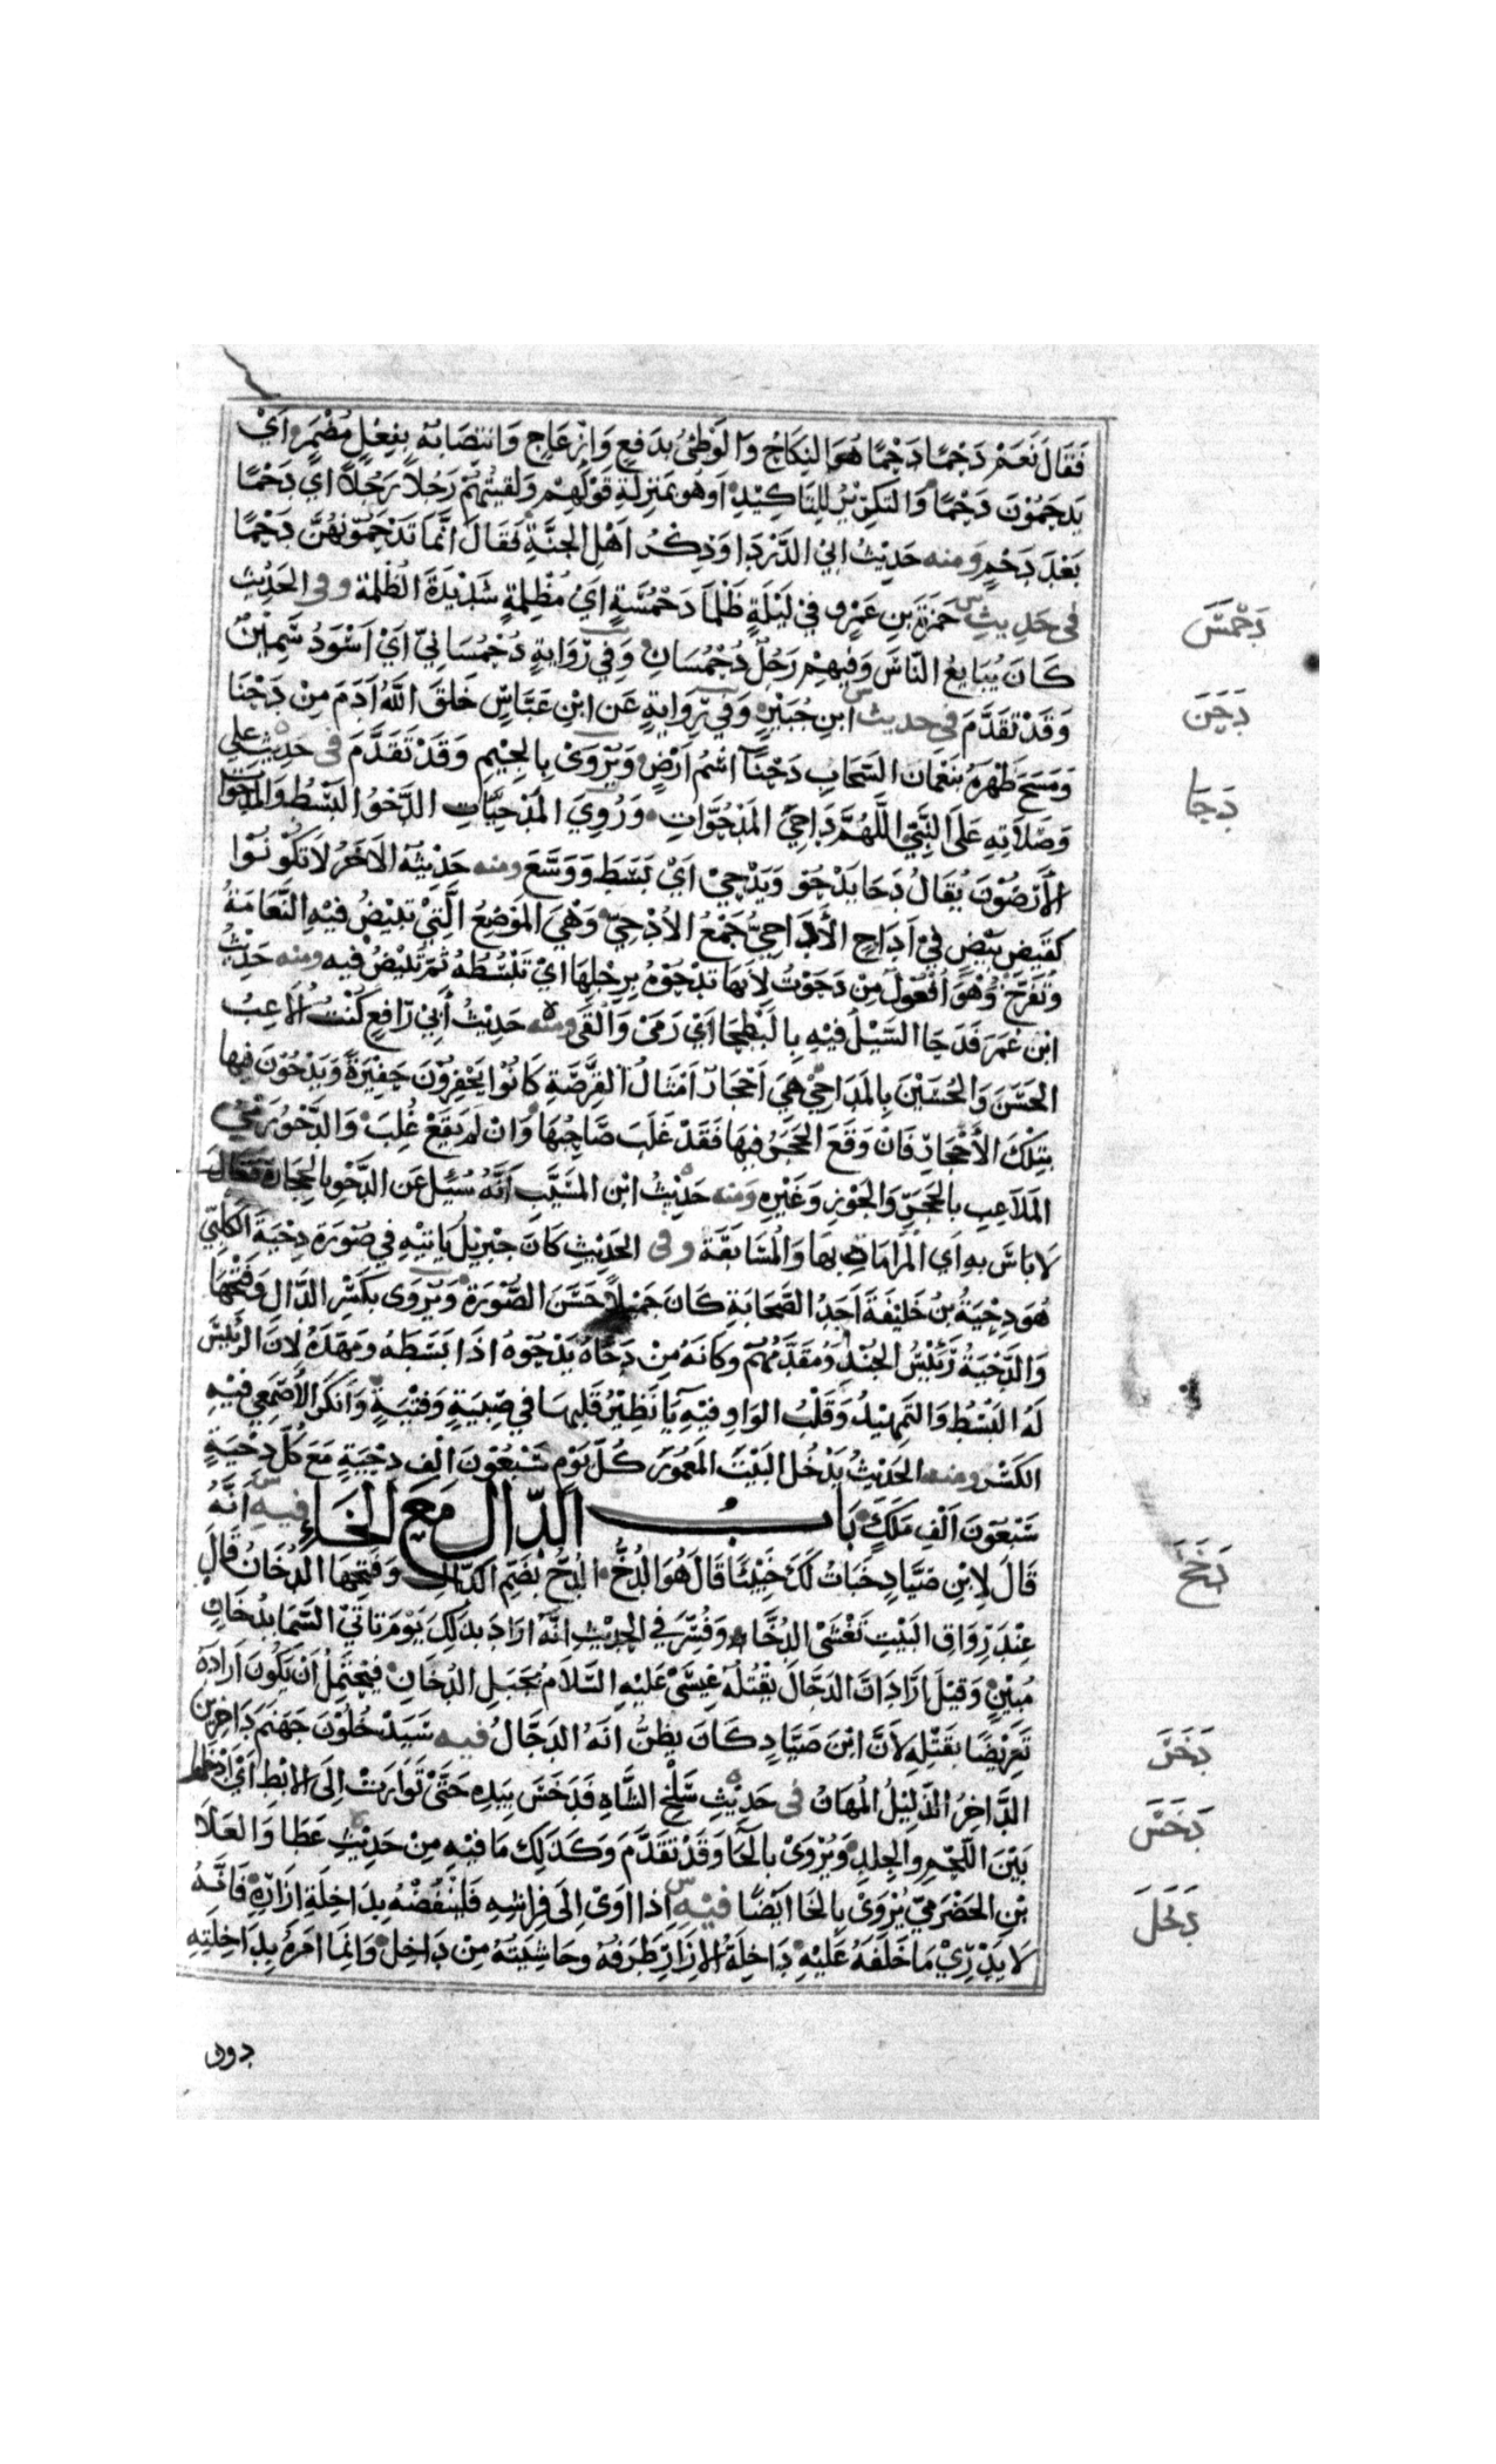 فَقَالَ نَعَمْ دَحْمًا دَحْمًا هُوَ النِكَاحُ وَالوَطْئُ بِدَفعٍ وَاِزْعَاجٍ وَانتصَابُهُ بِفِعْلٍ مُضْمَرٍ اَىْ
يَدحَمُوْنَ دَحْمًا وَالتَكرِيْرُ لِلتَاكِيْدِ اوهُو بمَنزِلَةِ قَوْلِهِمْ وَلقيتُهُمْ رَجُلاً رَجُلاً اىْ دَحْمًا
بَعْدَ دَحْمٍ ومنه حَدِيْثُ ابِي الدَّرْدَا وَذِكْرُ اَهْلِ الجنَّةِ فَقَالَ انَّمَا تَدْحَمُوْنَهُنَّ دَحْمًا
فى حَدِيثِ حَمْزَةَ بنِ عَمْرٍو فِيْ لَيْلَةٍ ظَلْمَا دَحْمُسَّةٍ اىْ مُظْلِمَةٍ شَدِيْدَةَ الظُلْمَة وفى الحَدِيْثِ
دَحْمَسَ
كَانَ يُبَايعُ النَّاسَ وَفِيهِمْ رَجُلٌ دُحْمُسَانٌ وَفِي رِوَايةٍ دُحْمُسَانِيٌّ اَىْ اَسْوَدُ سَمِيْنٌ
وَقَدْ تَقَدَّمَ فى حديث ابنِ جُبَيْرٍ وَفِي رِوَايةٍ عَن ابْنِ عَبَّاسٍ خَلَقَ اللهُ اَدَمَ مِنْ دَحْنَا
دَحَنَ
وَمَسَحَ ظَهْرَهُ بنَعْمَان السَّحَابِ دَحْنَا اسْمُ ارَضٍ وَيُرْوَىْ بِالجِيْمِ وَقَدْ تَقَدَّمَ فى حَدِيْثِ عَلِي
دَحَا
وَصَلاَتِهِ عَلَى النَّبِيِّ اللَّهُمَّ دَاحِيَ المَدْحُوَّاتِ وَرُوِيَ المَدْحِيَّاتِ الدَّحْوُ البَسْطُ وَالمَدْحُوَّا
الأَرَضُوْنَ يُقَالُ دَحَا يَدْحُو وَيَدْحِيْ اَىْ بَسَطَ وَوَسَّعَ ومنه حَدِيْثُهُ الاَخَرُ لاَ تَكُوْنُوْا
كَقَيضِ بَيْضٍ فِيْ اَدَاحٍ الأَدَاحِيُّ جَمْعُ الأُدْحِيِّ وَهْيَ المَوضِعُ الَّتِيْ تَبِيْضُ فيْهِ النَّعَامَةُ
وَتُفَرِّخُ وَهْوَ اُفْعُولٌ مِنْ دَحَوْتُ لأَنَهَا تَدْحُوْهُ بِرِجْلِهَا اىْ تَبْسُطُهُ ثمَّ تَبْيْضُ فيه ومنه حَدِيْثُ
ابْنِ عُمَرَ فَدَحَا السَّيْلُ فيْهِ بِالبَطْحَا اَىْ رَمَىْ وَاَلْقَى ومنه حَدِيْثُ أَبِيْ رَافِعٍ كُنْتُ اُلاَعِبُ
الحَسَنَ وَالحُسَيْنَ بِالمَدَاحِيْ هِيَ اَحْجَارٌ اَمْثَالُ القِرْصَةِ كَانُوْا يَحْفِرُوْنَ حَفِيْرَةً وَيَدْحُوْنَ فيها
بتِلْكَ الأَحْجَارِ فَانْ وَقَعَ الحَجَرُ فيهَا فَقَدْ غَلَبَ صَاحِبُهَا وَاِنْ لَم يَقَعْ غُلِبَ وَالدَّحْوُ رَمْىُ
المَلاَعِبِ بالحَجَرِ وَالجَوْزِ وَغَيْرِهِ وَمنه حَدِيْثُ ابْنِ المُسَيَّبِ اَنَّهُ سُئِلَ عَنِ الدَّحْوِ بِالحِجَارَةِ فَقَالَ
لاَ بَاسَ بِهِ اَىِ المُرَامَاةِ بِهَا وَالمُسَابَقَة وفى الحَدِيْثِ كَانَ جِبْرِيْلُ يَاتِيْهِ فِي صُوْرَةِ دِحْيَةَ الكَلْبِيِّ
هُوَ دِحْيَةُ بْنُ خَلِيْفَةَ اَحَدُ الصَّحَابَةِ كَانَ جَمِيْلاً حَسَنَ الصُّوْرَةِ وَيُرْوَى بكَسْرِ الدَّالِ وَفَتْحِهَا
وَالدِّحْيَةُ رَئِيْسُ الجُنْدِ وَمُقَدَّمُهُمْ وَكَانَهُ مِنْ دَحَاهُ يَدْحُوْهُ اذَا بَسَطَهُ وَمَهَّدَهُ لأَنَ الرَئِيْسَ
لَهُ البَسْطُ وَالتَمهِيْدُ وَقَلْبُ الوَاوِ فيْهِ يَا نَظِيْرُ قَلْبِهَا في صِبْيَةٍ وَفِتْيَةٍ وَاَنكَرَ الاَصْمَعِي فيْهِ
الكَسْرَ ومنه الحَدِيْثُ يَدْخُلُ البَيْتَ المَعْمُوْرَ كُلَّ يَوْمٍ سَبْعُوْنَ اَلْفِ دِحْيَةٍ مَعَ كُلِّ دِحْيَةٍ
سَبْعُوَنَ اَلْفِ مَلَكٍ بَابُ الدّال مَعَ الخَاءِ فيه اَنَّهُ
قَالَ لاِبْنِ صَيَّادٍ خَبَاتُ لَكَ خَبِيْئًا قَالَ هُوَ الدُخُّ الدُخُّ بضَمِّ الدَّالِ وَفَتْحِهَا الدُخَانُ قَالَ
دَخَخَ
عِنْدَ رِوَاقِ البَيْتِ تَغْشَى الدُخَّا وَفُسِّرَ فِي الحَدِيْثِ اَنَّهُ اَرَادَ بذَلِكَ يَوْمَ تَاتِيْ السَّمَا بِدُخَانٍ
مُبِيْنٍ وَقِيْلَ اِرَادَ انَّ الدَجَّالَ يَقْتُلُهُ عِيْسَىْ عَلَيْهِ السَّلاَمُ بجَبَلِ الدُخَانِ فَيَحْتَمِلُ اَنْ يَكُونَ اَرَادَهُ
تَعْرِيْضًا بِقَتْلِهِ لأَنَّ ابْنَ صَيَّادٍ كَانَ يُظَنُّ اَنَهُ الدَجَّالُ فيه سَيَدْخُلُوْنَ جَهَنَمَ دَاخِرِيْنَ
دَخَرَ
الدَّاخِرُ الذَّلِيْلُ المُهَانُ فى حَدِيْثِ سَلْخِ الشَّاةِ فَدَخَسَ بِيَدِهِ حَتَّى تَوَارَتْ اِلَى الاِبْطِ اَىْ اَدْخَلَهَا
دَخَسَ
بَيْنَ اللَّحْمِ وَالجِلدِ وَيُرْوَىْ بِالحَا وَقَدْ تقَدَّمَ وَكَذَلِكَ مَا فيْهِ مِنْ حَدِيْثِ عَطَا وَالعَلاَ
بْنِ الحَضْرَمِيِّ يُرْوَىْ بِالخَا اَيْضًا فيْهِ اِذَا اَوَىْ اِلَى فِرَاشِهِ فَلْيَنْفُضْهُ بِدَاخِلَةِ اِزَارِهِ فَانَّهُ
دَخَلَ
لاَ يَدْرِيْ مَا خَلَفَهُ عَلَيْهِ دَاخِلَةُ الاِزَارِ طَرَفُهُ وَحَاشِيَتُهُ مِنْ دَاخِلٍ وَانِمَا اَمَرَهُ بِدَاخِلَتِهِ
دون